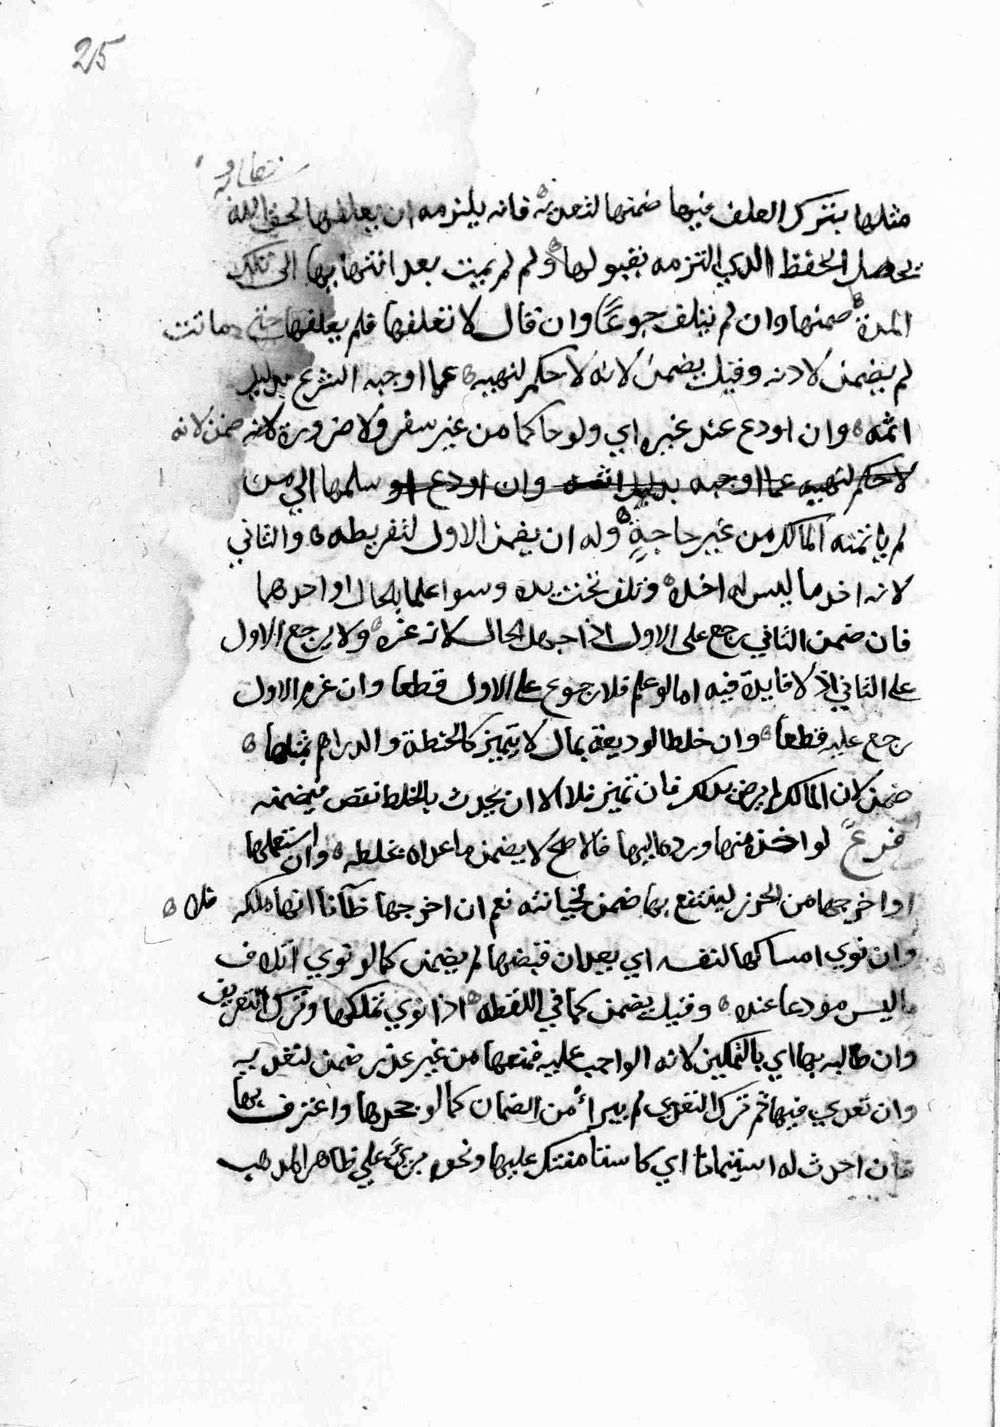 25
تعالى و
مثلها بترك العلف فيها ضمنها لتعديه فانه يلزمه ان يعلفها لحق الله
يحصل الحفظ الذي التزمه بقبولها ولم لم يمت بعد انتهايها الى تلك
المدة ضمنها وان لم يتلف جوعًا وان قال لا تعلفها فلم يعلفها حتى ماتت
لم يضمن لاذنه وقيل يضمن لانه لا حكم لنهيه عما اوجبه الشرع بدليل
اثمه وان اودع عند غيره اي ولو حاكما من غير سفر ولا ضرورة ضمن لانه
لا حكم لنهيه عما اوجبه بدليل اثمه وان اودع او سلمها الى من
لم ياتمنه المالك من غير حاجةٍ وله ان يضمن الاول لتفريطه والثاني
لانه اخذ ما ليس له اخذه وتلف تحت يده وسوا علما بالحال او احدهما
فان ضمن الثاني رجع على الاول اذا جهل الحال لانه غره ولا يرجع الاول
على الثاني اذ لا فايدة فيه اما لو علم فلا رجوع على الاول قطعا وان غرم الاول
رجع عليه قطعا وان خلط الوديعة بمال لا يتميز كالحنطة والدراهم بمثلها
ضمن لان المالك لم يرض بذلك فان تميز فلا الا ان يحدث بالخلط نقص فيضمنه
فرعٌ لو اخذ منها ورده اليها فالاصح لا يضمن ما عداه بخلطه وان استعملها
او اخرجها من الحرز لينتفع بها ضمن لخيانته نعم ان اخرجها ظانا انها ملكه فلا
وان نوى امساكها لنفسه اي بعد ان قبضها لم يضمن كما لو نوى اتلاف
ما ليس مودعا عنده وقيل يضمن كما في اللقطه اذا نوى تملكها وترك التعريف
وان طالبه بها اي بالتمكين لانه الواجب عليه فمنعها من غير عذر ضمن لتعديه
وان تعدى فيها ثم ترك التعدي لم يبرأ من الضمان كما لو جحدها واعترف بها
فان احدث له استيمانا اي كاستامنتك عليها ونحوه بريَ على ظاهر المذهب